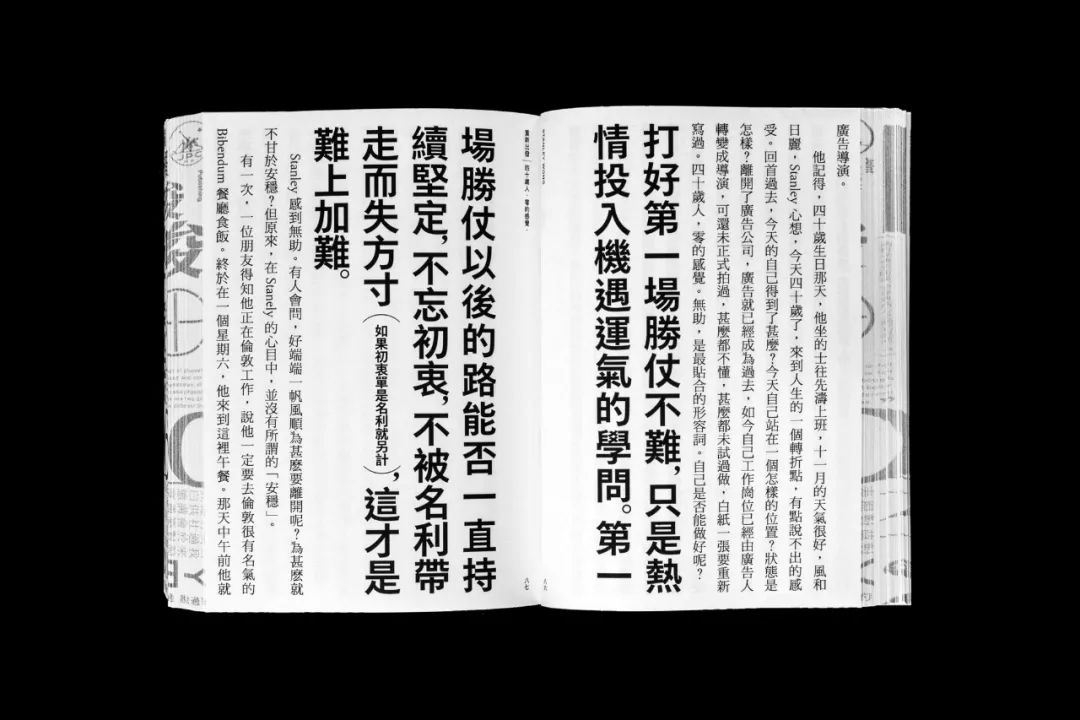 廣告導演。
他記得，四十歲生日那天，他坐的士往先濤上班，十一月的天氣很好，風和
日麗，Stanley 心想，今天四十歲了，來到人生的一個轉折點，有點說不出的感
受。回首過去，今天的自己得到了甚麼？今天自己站在一個怎樣的位置？狀態是
怎樣？離開了廣告公司，廣告就已經成為過去，如今自己工作崗位已經由廣告人
轉變成導演，可還未正式拍過，甚麼都不懂，甚麼都未試過做，白紙一張要重新
寫過。四十歲人，零的感覺。無助，是最貼合的形容詞。自己是否能做好呢？
打好第一場勝仗不難，只是熱
情投入機遇運氣的學問。第一
八六
重新出發「四十歲人，零的感覺」
八七
場勝仗以後的路能否一直持
續堅定，不忘初衷，不被名利帶
走而失方寸（如果初衷單是名利就另計），這才是
難上加難。
Stanley 感到無助。有人會問，好端端一帆風順為甚麼要離開呢？為甚麼就
不甘於安穩？但原來，在 Stanely 的心目中，並沒有所謂的「安穩」。
有一次，一位朋友得知他正在倫敦工作，說他一定要去倫敦很有名氣的
Bibendum 餐廳食飯。終於在一個星期六，他來到這裡午餐。那天中午前他就